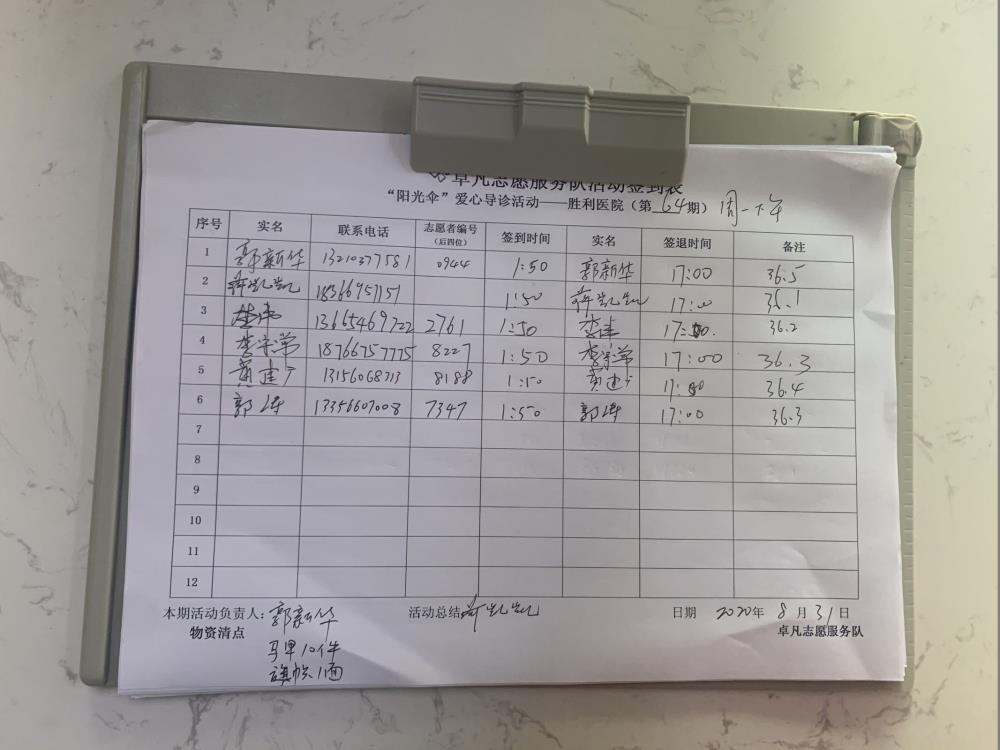 卓凡志愿服务队活动签到表
“阳光伞”爱心导诊活动——胜利医院（第64期） 周一下午
序号 实名 联系电话 志愿者编号（后四位） 签到时间 实名 签退时间 备注
1 郭新华 13210377581 0944 1:50 郭新华 17:00 36.5
2 蒋凯凯 18366957151 1:50 蒋凯凯 17:00 36.1
3 13665469722 2761 1:50 17:00. 36.2
4 18766757775 8227 1:50 17:00 36.3
5 黄建广 13156068713 8188 1:50 黄建广 17:00 36.4
6 郭涛 13356607008 7347 1:50 郭涛 17:00 36.3
7
8
9
10
11
12
本期活动负责人：郭新华 活动总结 蒋凯凯 日期 2020年 8月31日
物资清点 卓凡志愿服务队
马甲10件
旗帜1面